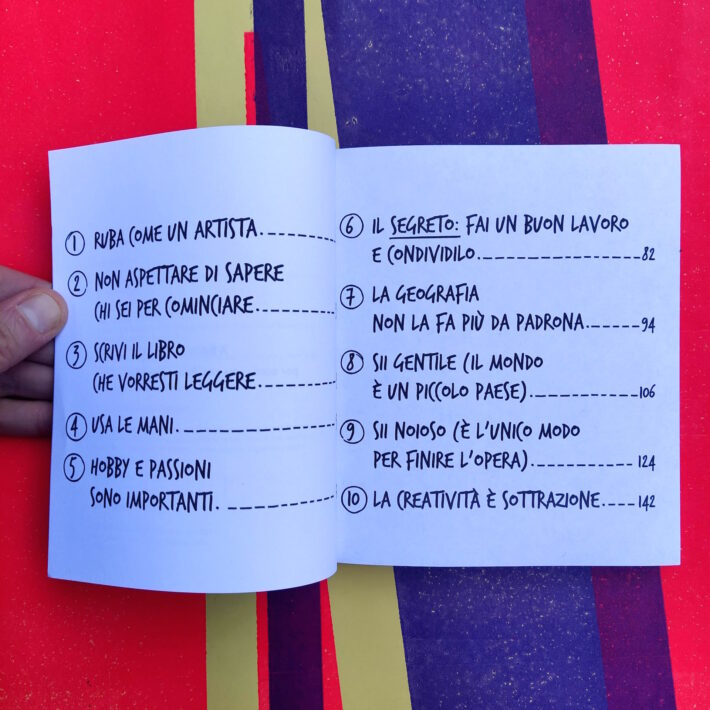 1 RUBA COME UN ARTISTA.
2 NON ASPETTARE DI SAPERE
CHI SEI PER COMINCIARE.
3 SCRIVI IL LIBRO
CHE VORRESTI LEGGERE.
4 USA LE MANI.
5 HOBBY E PASSIONI
SONO IMPORTANTI.
6 IL SEGRETO: FAI UN BUON LAVORO
E CONDIVIDILO. 82
7 LA GEOGRAFIA
NON LA FA PIÙ DA PADRONA. 94
8 SII GENTILE (IL MONDO
È UN PICCOLO PAESE). 106
9 SII NOIOSO (È L'UNICO MODO
PER FINIRE L'OPERA). 124
10 LA CREATIVITÀ È SOTTRAZIONE. 142